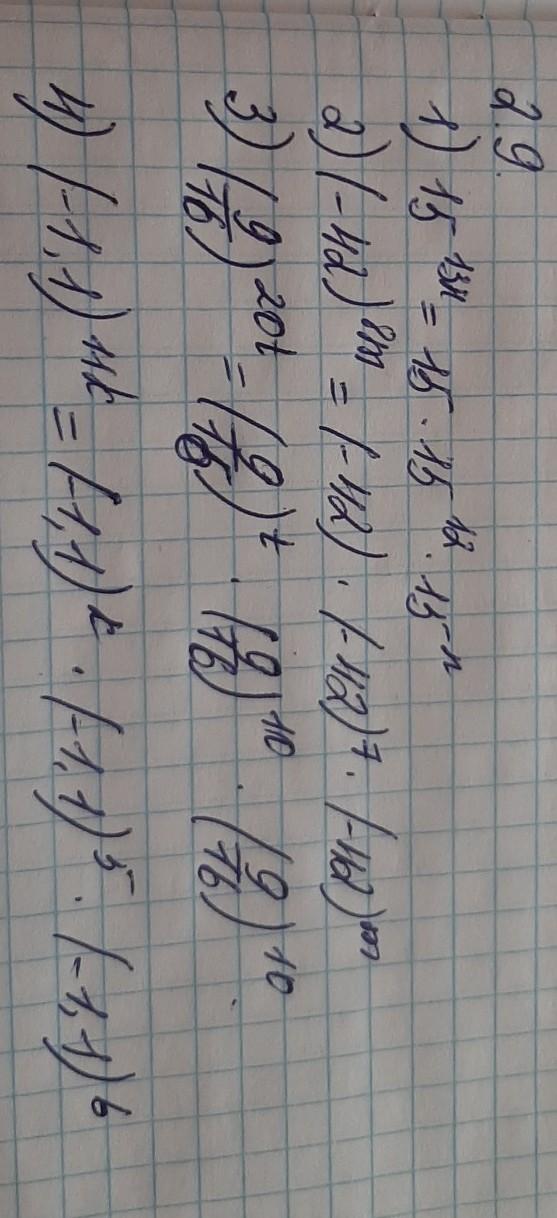 2.9.
1) 15¹³ⁿ = 15 · 15¹² · 15ⁿ
2) (-42)⁸ᵐ = (-42) · (-42)⁷ · (-42)ᵐ
3) (9/16)²⁰ᵗ = (9/16)ᵗ · (9/16)¹⁰ · (9/16)¹⁰.
4) (-1,1)¹¹ᵏ = (-1,1)ᵏ · (-1,1)⁵ · (-1,1)⁶